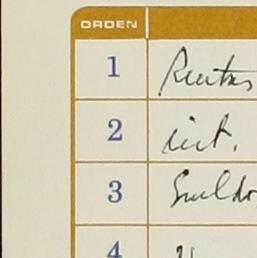 ORDEN
1 Rentas
2 int.
3 Sueldo
4